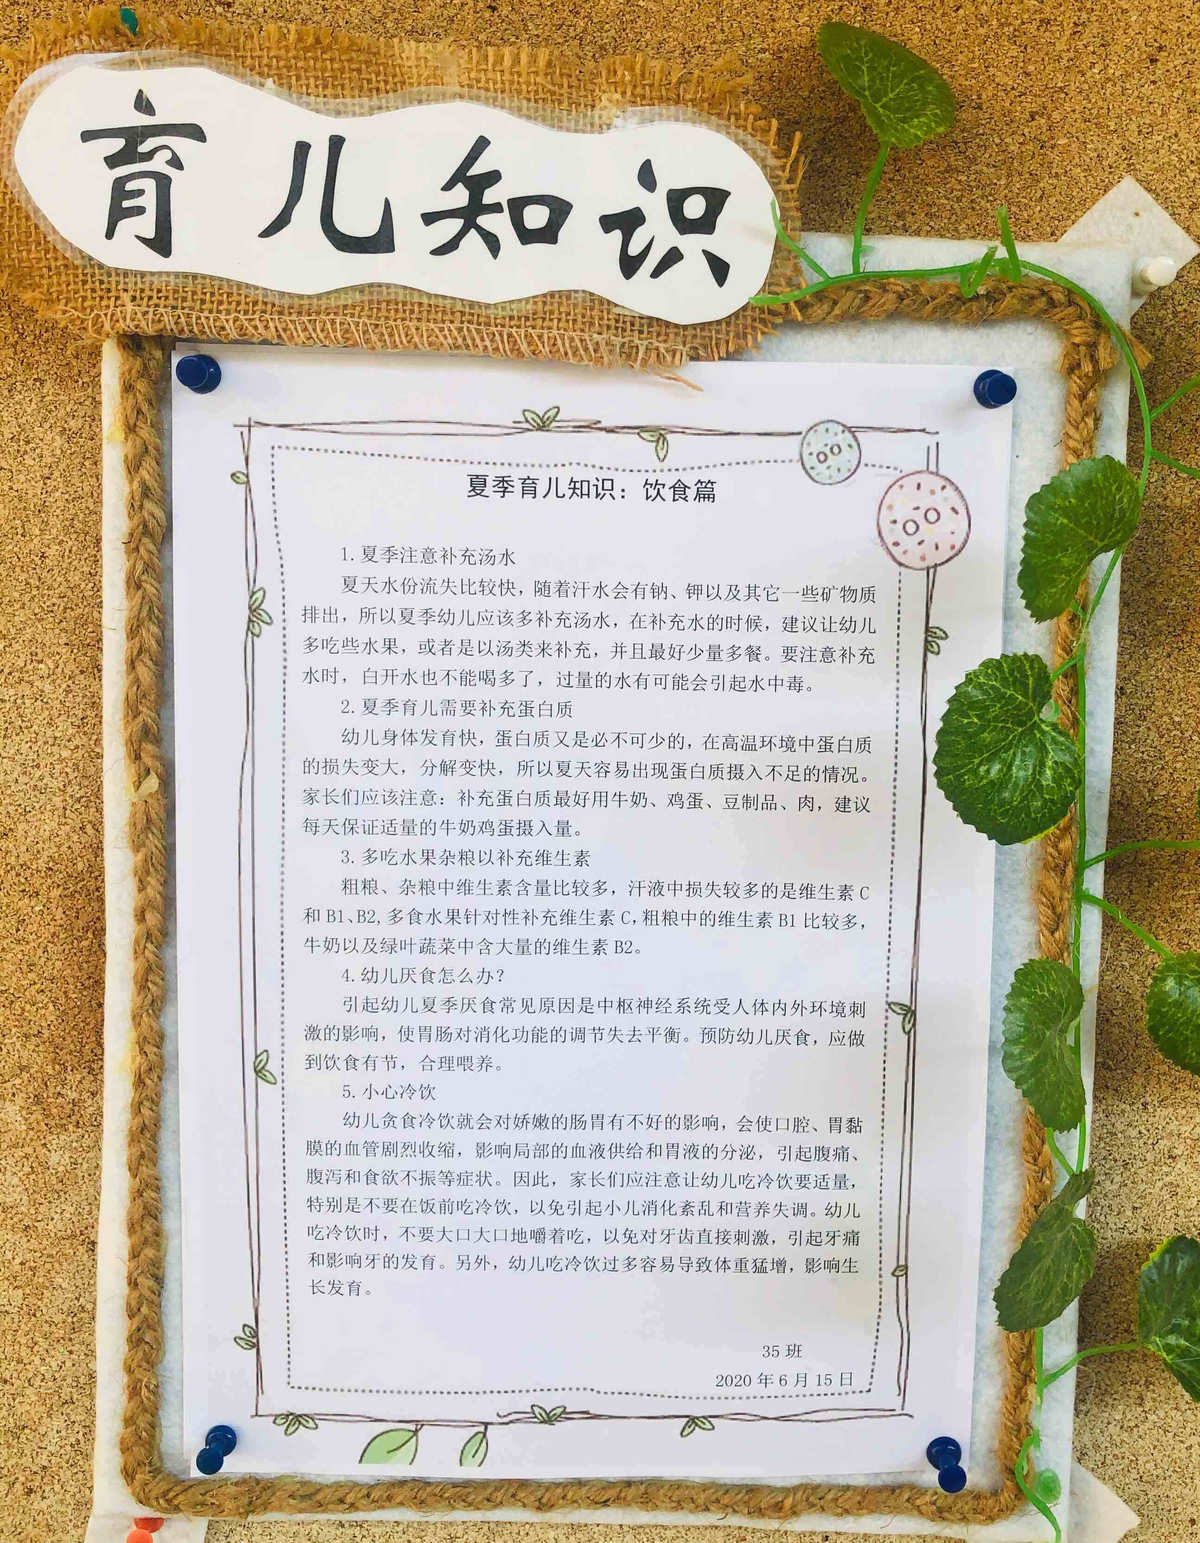 育儿知识
夏季育儿知识：饮食篇
1.夏季注意补充汤水
夏天水份流失比较快，随着汗水会有钠、钾以及其它一些矿物质
排出，所以夏季幼儿应该多补充汤水，在补充水的时候，建议让幼儿
多吃些水果，或者是以汤类来补充，并且最好少量多餐。要注意补充
水时，白开水也不能喝多了，过量的水有可能会引起水中毒。
2.夏季育儿需要补充蛋白质
幼儿身体发育快，蛋白质又是必不可少的，在高温环境中蛋白质
的损失变大，分解变快，所以夏天容易出现蛋白质摄入不足的情况。
家长们应该注意：补充蛋白质最好用牛奶、鸡蛋、豆制品、肉，建议
每天保证适量的牛奶鸡蛋摄入量。
3.多吃水果杂粮以补充维生素
粗粮、杂粮中维生素含量比较多，汗液中损失较多的是维生素C
和B1、B2,多食水果针对性补充维生素C,粗粮中的维生素B1比较多，
牛奶以及绿叶蔬菜中含大量的维生素B2。
4.幼儿厌食怎么办？
引起幼儿夏季厌食常见原因是中枢神经系统受人体内外环境刺
激的影响，使胃肠对消化功能的调节失去平衡。预防幼儿厌食，应做
到饮食有节，合理喂养。
5.小心冷饮
幼儿贪食冷饮就会对娇嫩的肠胃有不好的影响，会使口腔、胃黏
膜的血管剧烈收缩，影响局部的血液供给和胃液的分泌，引起腹痛、
腹泻和食欲不振等症状。因此，家长们应注意让幼儿吃冷饮要适量，
特别是不要在饭前吃冷饮，以免引起小儿消化紊乱和营养失调。幼儿
吃冷饮时，不要大口大口地嚼着吃，以免对牙齿直接刺激，引起牙痛
和影响牙的发育。另外，幼儿吃冷饮过多容易导致体重猛增，影响生
长发育。
35班
2020年6月15日